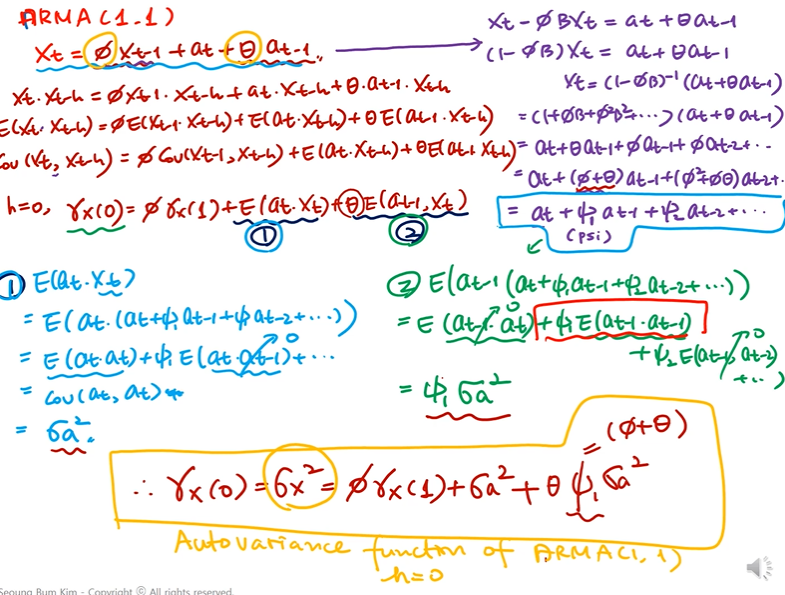 ARMA(1.1)
Xt = ∅ Xt-1 + at + θ at-1.
Xt·Xt-h = ∅Xt-1·Xt-h + at·Xt-h + θ·at-1·Xt-h
E(Xt·Xt-h) = ∅E(Xt-1·Xt-h) + E(at·Xt-h) + θ E(at-1·Xt-h)
Cov(Xt, Xt-h) = ∅ Cov(Xt-1, Xt-h) + E(at·Xt-h) + θE(at-1 Xt-h)
h=0, γx(0) = ∅ γx(1) + E(at·Xt) + θ E(at-1, Xt)
① ②
Xt - ∅BXt = at + θ at-1
(1-∅B)Xt = at + θ at-1
Xt = (1-∅B)⁻¹ (at+θat-1)
= (1+∅B+∅²B²+···) (at+θ at-1)
= at+θat-1+∅at-1+∅at-2+··
= at+(∅+θ)at-1+(∅²+∅θ)at-2+..
= at + ψ₁ at-1 + ψ₂ at-2 + ···
(psi)
① E(at·Xt)
= E(at·(at+ψ₁at-1+ψ at-2+···))
= E(at·at)+ψ₁E(at·at-1)+··· 0
= Cov(at, at)
= σa².
② E(at-1(at+ψ₁at-1+ψ₂at-2+···))
= E(at-1·at) 0 +ψ₁E(at-1·at-1)
+ψ₂E(at-1, at-2) 0
+··)
= ψ₁ σa²
= (∅+θ)
∴ γx(0) = σx² = ∅γx(1)+σa²+θ ψ₁σa²
Autovariance function of ARMA(1,1)
h=0
Seoung Bum Kim - Copyright ⓒ All rights reserved.